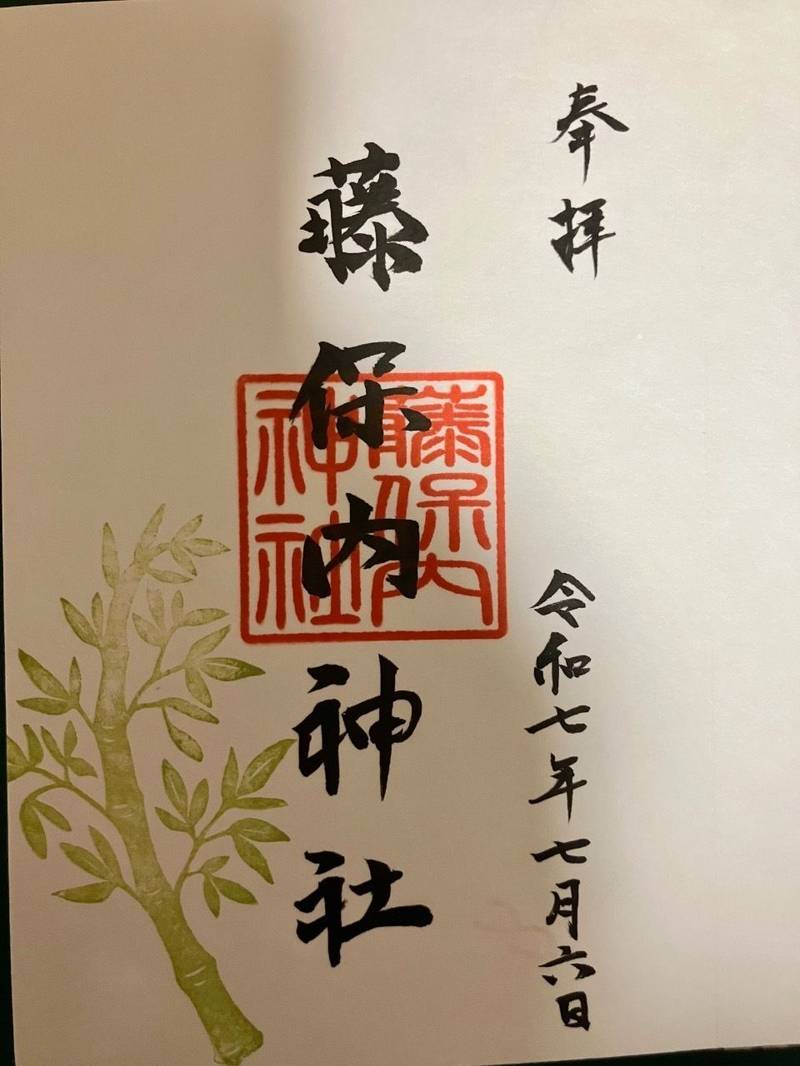 奉拝
令和七年七月六日
藤保内神社
藤保内
神社